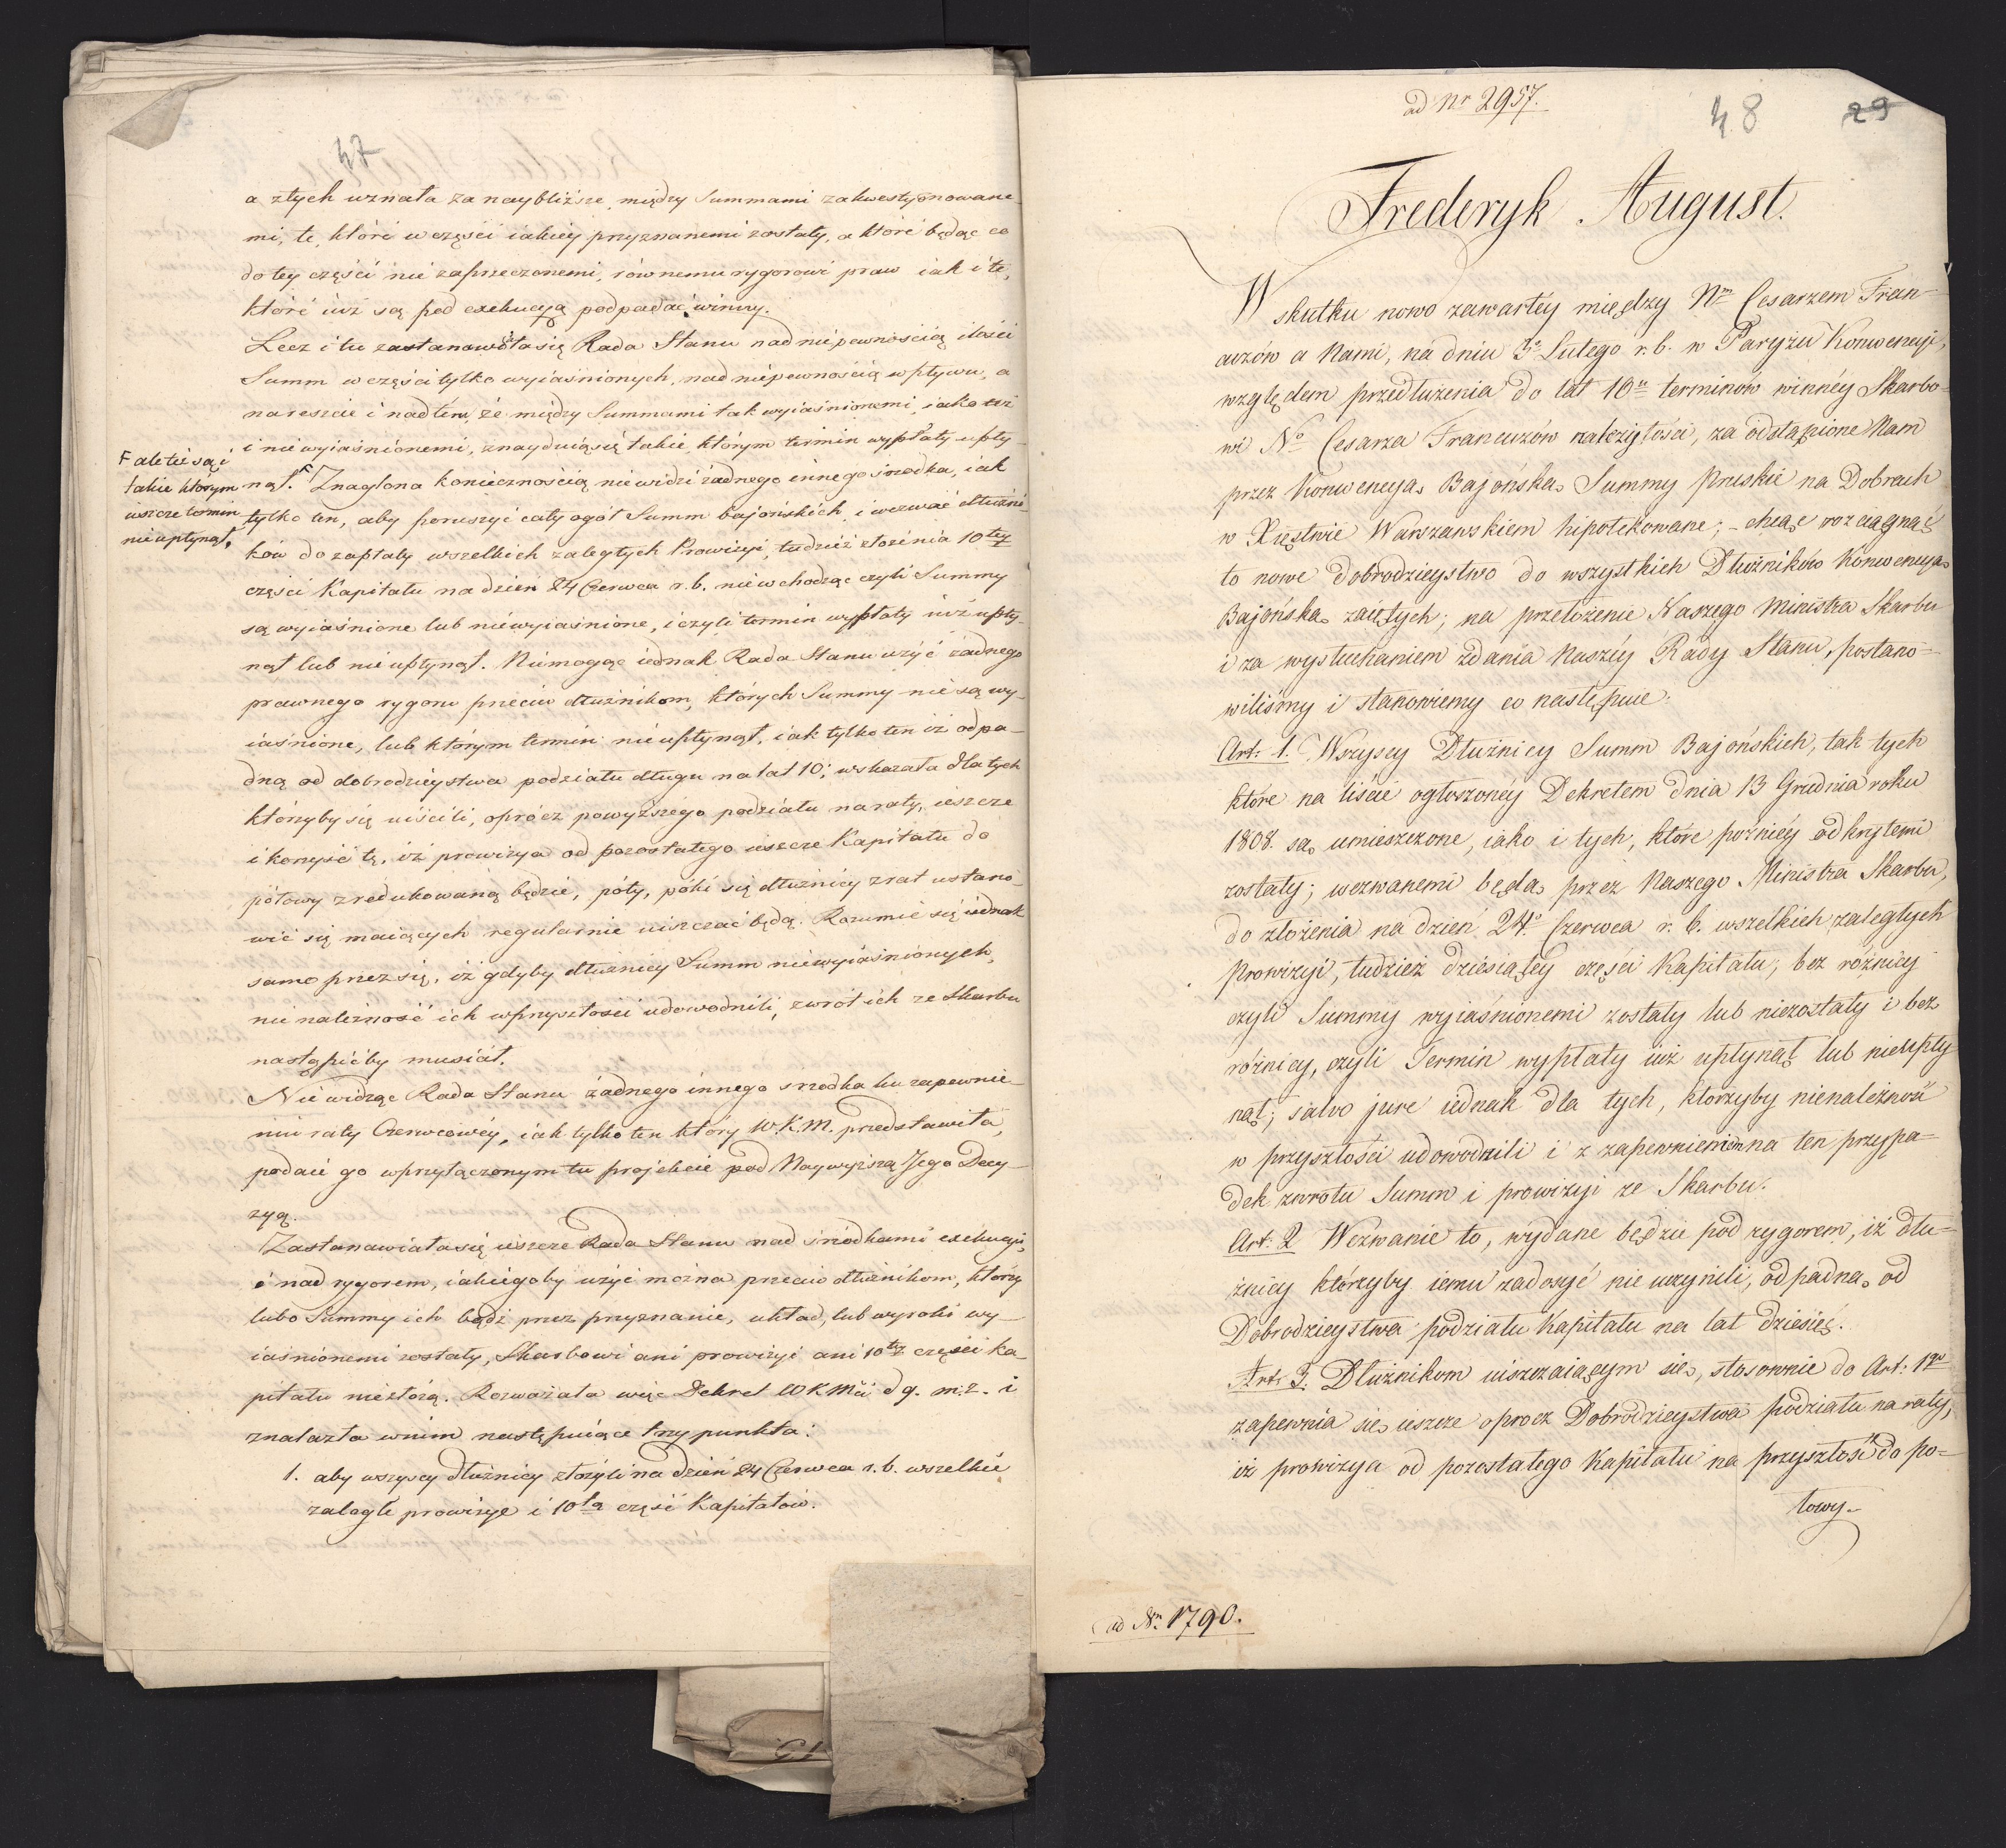 47
a ztych uznała za naybliższe, między Summami zakwestyonowane
mi, te, któré w części iakiey przyznanemi zostały, a któré będąc co
do tey części nié zaprzeczonemi, równemu rygorowi praw iak i te,
któré iuż są pod exekucyą podpadać winny.
Lecz i tu zastanowiła się Rada Stanu nad niépewnością ilości
Summ w części tylko wyiaśnionych, nad niépewnością wpływu, a
nareszcie i nad tém, że między Summami tak wyiaśnionemi, iako też
i niewyiaśnionemi, znayduią się takie, którym termin wypłaty upły-
F ale też są i
takie którym
ieszcze termin
nieupłynął.
nął. F Znaglona koniecznością nie widzi żadnego innego środka, iak
tylko ten, aby poruszyć cały ogół Summ bajońskich, i wezwać dłużni-
ków do zapłaty wszelkich zaległych Prowizyi, tudzież złożenia 10tey
części Kapitału na dzień 24 Czerwca r. b. niewchodząc czyli Summy
są wyiaśnione lub niéwyiaśnione, i czyli termin wypłaty iuż upły-
nął lub nie upłynął. Niemogąc iednak Rada Stanu użyć żadnego
prawnego rygoru przeciw dłużnikom, których Summy nié są wy-
iaśnione, lub którym termin nié upłynął, iak tylko ten iż odpa-
dną od dobrodzieystwa podziału długu na lat 10; wskazała dla tych
którzyby się uiścili, oprócz powyższego podziału na raty, ieszcze
i korzyść tę, iż prowizya od pozostałego ieszcze Kapitału do
połowy zredukowaną będzie, póty, póki się dłużnicy z rat ustano-
wić się maiących regularnie uiszczać będą. Rozumié się iednak
samo przez się, iż gdyby dłużnicy Summ niewyiaśnionych,
nienależność ich w przyszłości udowodnili, zwrót ich ze Skarbu
nastąpićby musiał.
Nie widząc Rada Stanu żadnego innego srzodka ku zapewnie-
niu raty Czerwcowéy, iak tylko ten który W. K. M. przedstawiła,
podaie go w przyłączonym tu projekcie pod Naywyższą Jego Decy-
zyą.
Zastanawiała się ieszcze Rada Stanu nad śrżódkami exekucyi,
i nad rygorem, iakiegoby użyć można przeciw dłużnikom, którzy
lubo Summy ich bądź przez przyznanie, układ, lub wyroki wy-
iaśnionemi zostały, Skarbowi ani prowizyi ani 10tey części ka-
pitału niezłożą. Rozważała więc Dekret WKMci d 9. m. z. i
znalazła w nim następuiące trzy punkta:
1. aby wszyscy dłużnicy złożyli na dzień 24 Czerwca r. b. wszelkie
zaległe prowizye i 10tą część Kapitałów.
ad Nr 2957.
48 29
Frederyk August.
W skutku nowo zawartéy między Nm Cesarzem Fran-
cuzów a Nami, na dniu 3o Lutego r. b. w Paryżu Konwencyi,
względem przedłużenia do lat 10u terminów winnéy Skarbo-
wi No Cesarza Francuzów należytości, za odstąpione Nam
przez Konwencyą Bajońską Summy pruskie na Dobrach
w Xięstwie Warszawskiem hipotekowane; - chcąc rozciągnąć
to nowe dobrodzieystwo do wszystkich Dłużników Konwencyą
Bajońską zaiętych; na przełożenie Naszego Ministra Skarbu
i za wysłuchaniem zdania Naszéy Rady Stanu, postano-
wiliśmy i stanowiemy co następuie.
Art: 1. Wszyscy Dłużnicy Summ Bajońskich, tak tych
które na liście ogłoszonéy Dekretem dnia 13 Grudnia roku
1808. są umieszczone, iako i tych, które poźniéy odkrytemi
zostały; wezwanemi będą przez Naszego Ministra Skarbu,
do złożenia na dzień 24o Czerwca r. b. wszelkich zaległych
Prowizyi, tudzież dziesiątey części Kapitału; bez różnicy
czyli Summy wyiaśnionemi zostały lub niezostały i bez
różnicy, czyli Termin wypłaty iuż upłynął lub nieupły
nął; salvo jure iednak dla tych, którzyby nienależność
w przyszłości udowodnili i z zapewnieniem na ten przypa-
dek zwrotu Summ i prowizyi ze Skarbu.
Art: 2 Wezwanie to, wydane będzie pod rygorem, iż dłu-
żnicy którzyby iemu zadosyć nie uczynili, odpadną od
Dobrodzieystwa podziału Kapitału na lat dziesięć.
Art: 3. Dłużnikom uiszczaiącym się, stosownie do Art. 1go
zapewnia się ieszcze oprócz Dobrodzieystwa podziału na raty,
iż prowizya od pozostałego Kapitału na przyszłość do po-
łowy
ad Nr. 1790.